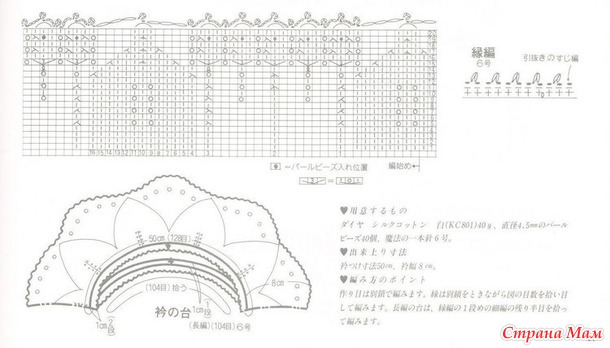 縁編
6号
引抜きのすじ編
=パールビーズ入れ位置
編始め
50cm(128目)
8cm
(104目)拾う
1cm
1cm
衿の台
(長編)(104目)6号
♥用意するもの
ダイヤ シルクコットン 白(KC801)40g、直径4.5㎜のパール
ビーズ40個、魔法の一本針6号。
♥出来上り寸法
衿つけ寸法50㎝、衿幅8㎝。
♥編み方のポイント
作り目は別鎖で編みます。縁は別鎖をときながら図の目数を拾い目
して編みます。長編の台は、縁編の1段めの細編の残り半目を拾っ
て編みます。
Страна Мам